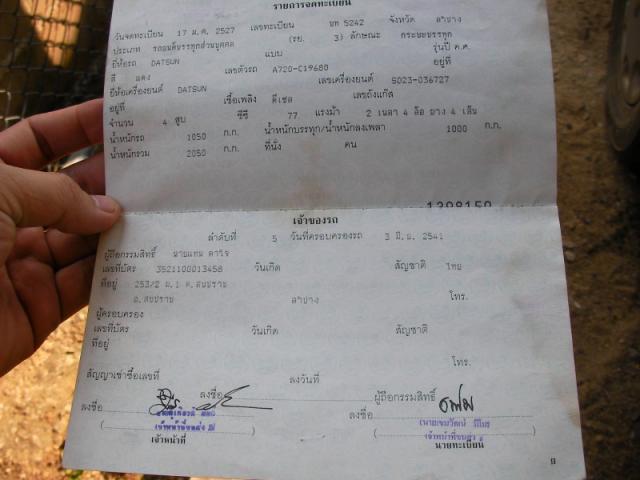 รายการจดทะเบียน
วันจดทะเบียน 17 ม.ค. 2527 เลขทะเบียน บท 5242 จังหวัด ลำปาง
ประเภท รถยนต์บรรทุกส่วนบุคคล (รย. 3) ลักษณะ กระบะบรรทุก
ยี่ห้อรถ DATSUN แบบ รุ่นปี ค.ศ.
สี แดง เลขตัวรถ A720-C19680 อยู่ที่
ยี่ห้อเครื่องยนต์ DATSUN เลขเครื่องยนต์ SD23-036727
อยู่ที่ เชื้อเพลิง ดีเซล เลขถังแก๊ส
จำนวน 4 สูบ ซีซี 77 แรงม้า 2 เพลา 4 ล้อ ยาง 4 เส้น
น้ำหนักรถ 1050 ก.ก. น้ำหนักบรรทุก/น้ำหนักลงเพลา 1000 ก.ก.
น้ำหนักรวม 2050 ก.ก. ที่นั่ง คน
1398150
เจ้าของรถ
ลำดับที่ 5 วันที่ครอบครองรถ 3 มิ.ย. 2541
ผู้ถือกรรมสิทธิ์
เลขที่บัตร 3521100013458 วันเกิด สัญชาติ ไทย
ที่อยู่ 253/2 ม.1 ต.สบปราบ
อ.สบปราบ ลำปาง โทร.
ผู้ครอบครอง
เลขที่บัตร วันเกิด สัญชาติ
ที่อยู่
โทร.
สัญญาเช่าซื้อเลขที่ ลงวันที่
ลงชื่อ ลงชื่อ ผู้ถือกรรมสิทธิ์
ลงชื่อ
เจ้าหน้าที่ นายทะเบียน